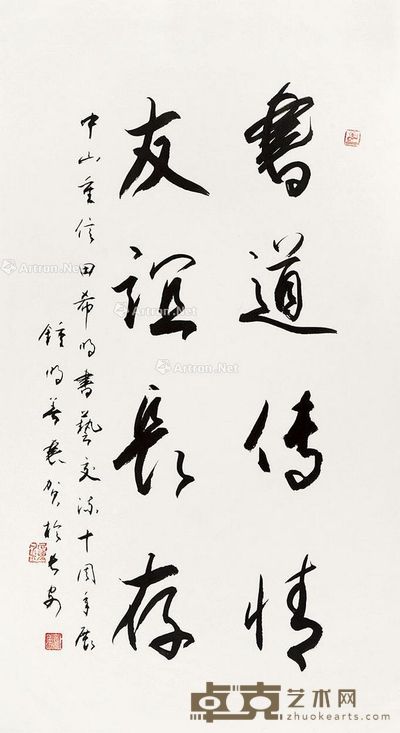 書道傳情
友誼長存
中山重信田希明書藝交流十周年展
鍾明善恭賀於長安
Artron.Net
Artron.Net
Artron.Net
Artron.Net
卓克艺术网
zhuokearts.com